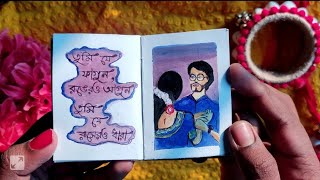 তুমি যে
ফাগুনে
রঙেরও আগুনে
তুমি
যে
রসেরও ধারা